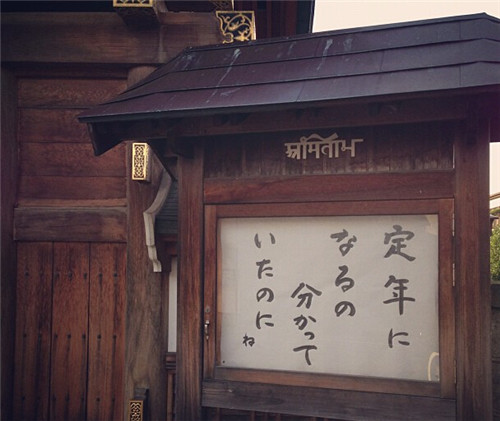 अमिताभ
定年に
なるの
分かって
いたのに
ね